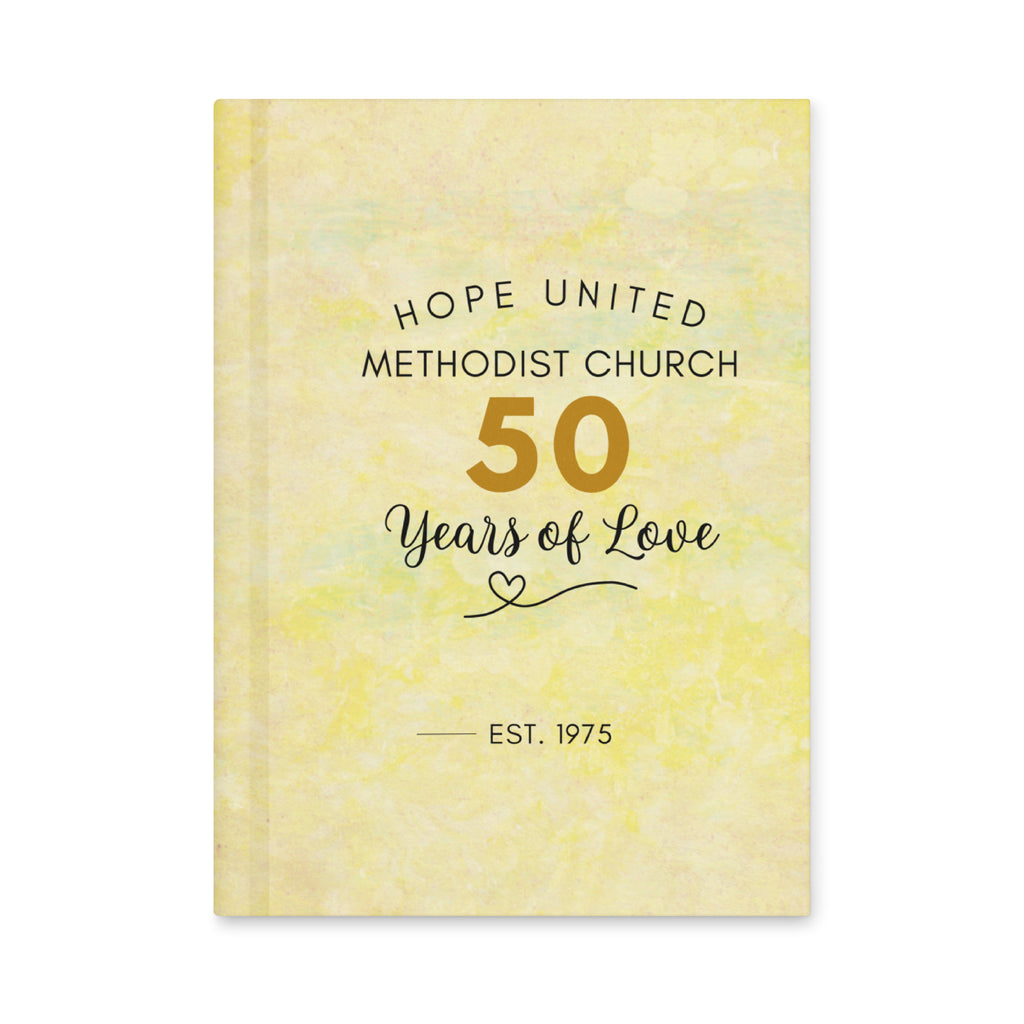 HOPE UNITED
METHODIST CHURCH
50
Years of Love
EST. 1975